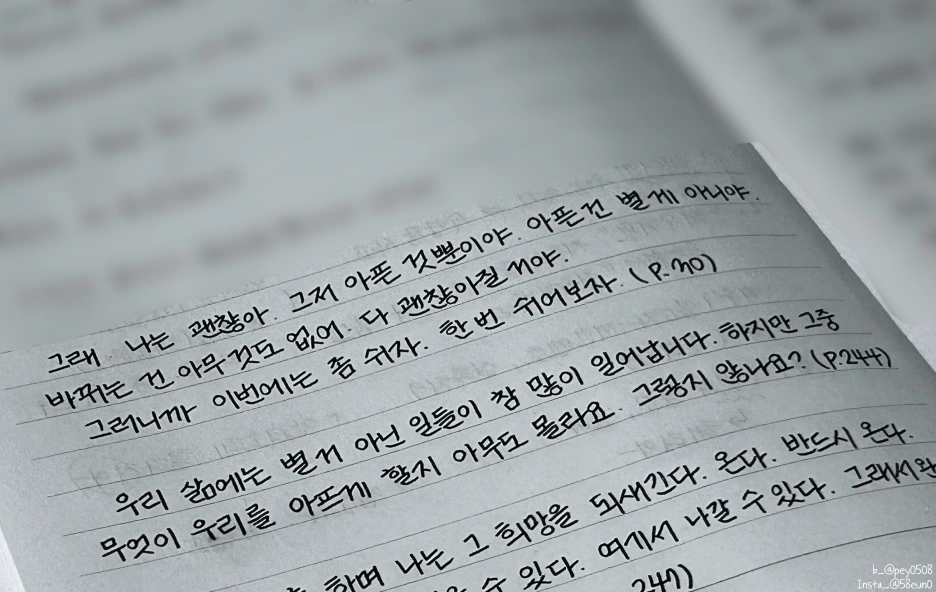 그래. 나는 괜찮아. 그저 아픈 것뿐이야. 아픈건 별게 아니야.
바뀌는 건 아무것도 없어. 다 괜찮아질 거야.
그러니까 이번에는 좀 쉬자. 한 번 쉬어보자. (P.70)
우리 삶에는 별거 아닌 일들이 참 많이 일어납니다. 하지만 그중
무엇이 우리를 아프게 할지 아무도 몰라요. 그렇지 않나요? (P.244)
하며 나는 그 희망을 되새긴다. 온다. 반드시 온다.
수 있다. 여기서 나갈 수 있다. 그래서 완
247)
b_@pey0508
Insta_@58eun0